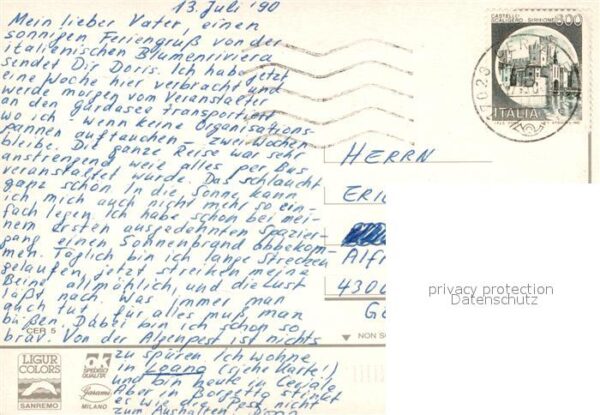 13. Juli '90
Mein lieber Vater, einen
sonnigen Feriengruß von der
italienischen Blumenriviera
sendet Dir Doris. Ich habe jetzt
eine Woche hier verbracht und
werde morgen vom Veranstalter
an den Gardasee transportiert
wo ich - wenn keine Organisations-
pannen auftauchen - zwei Wochen
bleibe. Die ganze Reise war sehr
anstrengend weil alles per Bus
veranstaltet wurde. Das schlaucht
ganz schön. In die Sonne kann
ich mich auch nicht mehr so ein-
fach legen. Ich habe schon bei mei-
nem ersten ausgedehnten Spazier-
gang einen Sonnenbrand abbekom-
men. Täglich bin ich lange Strecken
gelaufen, jetzt streiken meine
Beine allmählich, und die Lust
läßt nach. Was immer man
auch tut für alles muß man
büßen. Dabei bin ich schon so
brav. Von der Algenpest ist nichts
zu spüren. Ich wohne
in Loano (siehe Karte!)
und bin heute in Ceriale
Aber in Borgetto stinkt
es wie die Pest nicht
zum Aushalten. Doris
HERRN
ERIC
Alfr
4300
CASTELLO
SCALIGERO SIRMIONE
300
ITALIA
CER 5
NON S
LIGUR
COLORS
SANREMO
ok
Garami
MILANO
privacy protection
Datenschutz